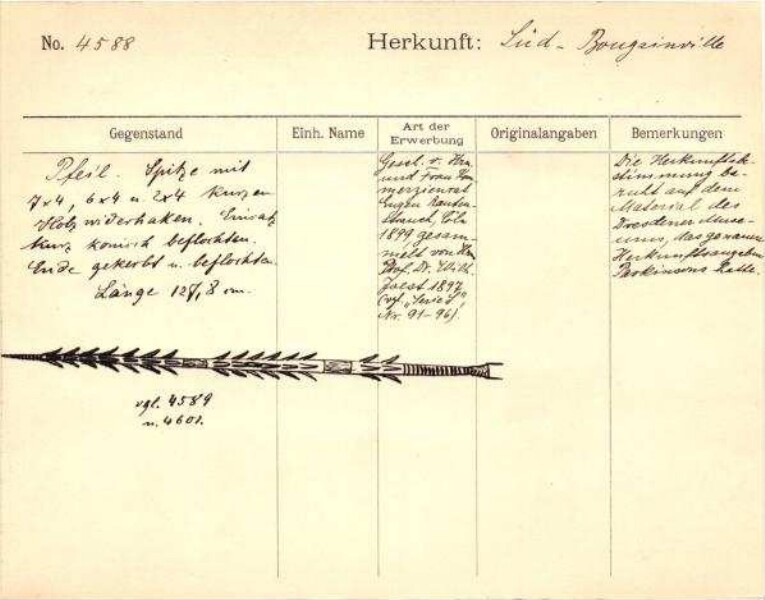 No. 4588
Herkunft: Süd-Bougainville
Gegenstand
Einh. Name
Art der
Erwerbung
Originalangaben
Bemerkungen
Pfeil. Spitze mit
7x4, 6x4 u. 2x4 kurzen
Holzwiderhaken. Einsatz
kurz konisch beflochten.
Ende gekerbt u. beflochten.
Länge 127,8 cm.
Gesch. v. Hrn.
und Frau Kom-
merzienrat
Eugen Rauten-
strauch, Cöln
1899 gesam-
melt von Hrn.
Prof. Dr. Wilh.
Joest 1897
(vgl. „Serie S",
Nr. 91-96).
Die Herkunftsbe-
stimmung be-
ruht auf dem
Material des
Dresdener Muse-
ums, das genaue
Herkunftsangaben
Parkinsons hatte.
vgl. 4589
u. 4601.